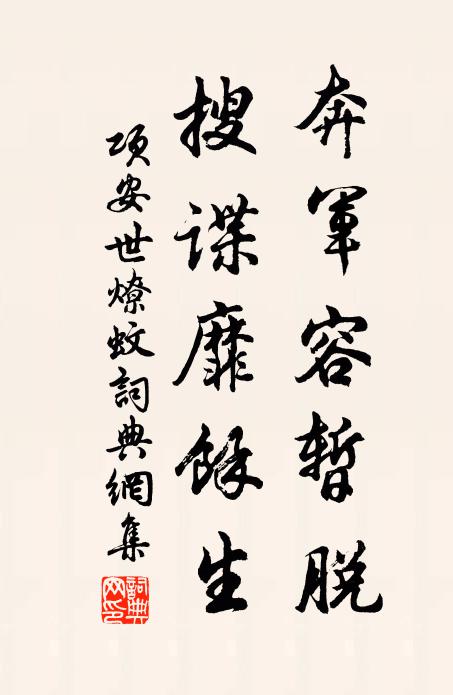 奔軍容暫脫
搜諜靡餘生
項安世燎蚊詞典網集
詞典网印